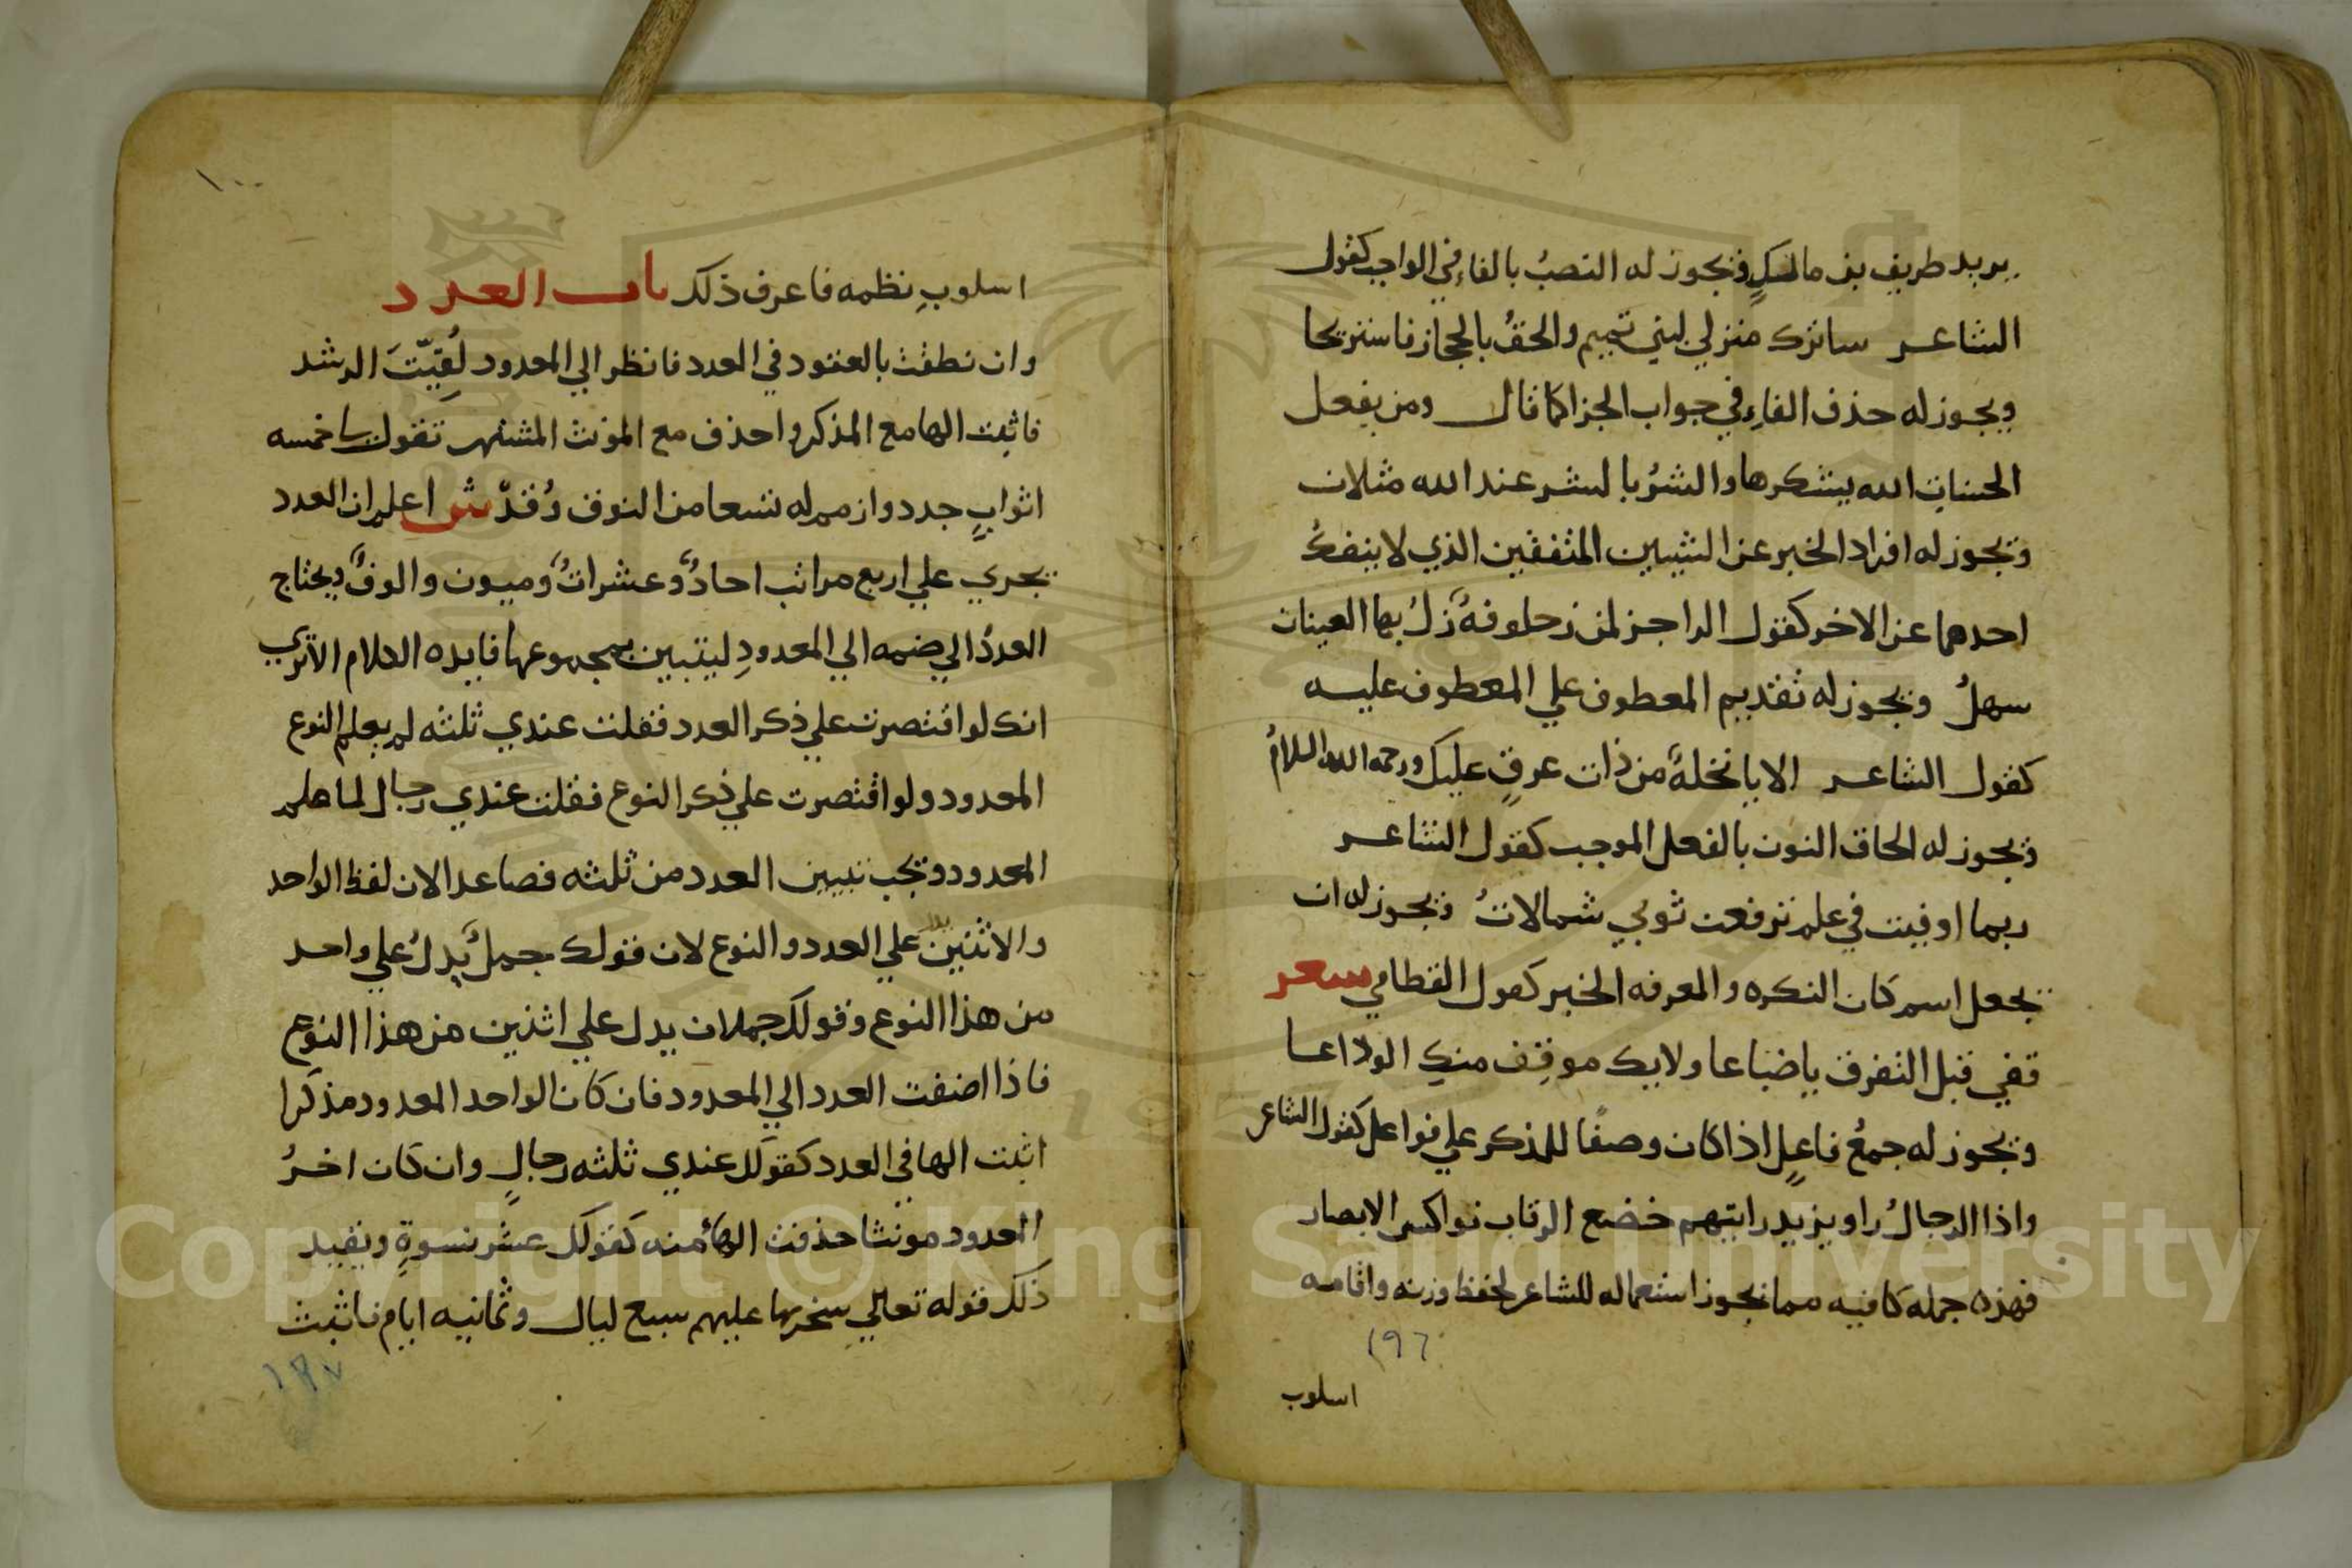 يريد طريف بن مالكٍ ويجوز له النصبُ بالفاءِ في الواجب كقول
الشاعر ساترك منزلي لبني تميم والحقُ بالحجاز فاستريحا
ويجوز له حذف الفاءِ في جواب الجزا كما قال ومن يفعل
الحسناتِ الله يشكرها والشرُ بالشر عند الله مثلان
ويجوز له افراد الخبر عن الشيين المتفقين الذي لا ينفكُ
احدهما عن الاخر كقول الراجز لمن زحلوفةٌ زلُ بها العينان
سهلُ ويجوز له تقديم المعطوف علي المعطوف عليه
كقول الشاعر الا يا نخلةً من ذات عرقٍ عليك ورحمه الله السلامُ
ويجوز له الحاق النون بالفعل الموجب كقول الشاعر
ربما اوفيت في علم ترفعن ثوبي شمالاتُ ويجوز له ان
يجعل اسم كان النكره والمعرفه الخبر كقول القطامي شعر
قفي قبل التفرق يا ضباعا ولا يك موقف منكِ الوداعا
ويجوز له جمعُ فاعلٍ اذا كان وصفًا للمذكر علي فواعل كقول الشاعر
واذا الرجالُ راو يزيد رايتهم خضع الرقاب نواكس الابصار
فهذه جمله كافيه مما يجوز استعماله للشاعر لحفظ وزنه واقامه
١٩٦
اسلوب
١٠٠
اسلوبِ نظمه فاعرف ذلك باب العدد
وان نطقت بالعقود في العدد فانظر الي المعدود لُقِيّتَ الرشد
فاثبت الها مع المذكر واحذف مع المونث المشتهر تقول لي خمسه
اثوابٍ جدد وازمم له تسعا من النوق وُقدْ ش اعلم ان العدد
يجري علي اربع مراتب احادٌ وعشراتٌ وميون والوفٌ ويحتاج
العددُ الي ضمه الي المعدودِ ليتبين بمجموعها فايده الكلام الا تري
انك لو اقتصرت علي ذكر العدد فقلت عندي ثلثه لم يعلم النوع
المعدود ولو اقتصرت علي ذكر النوع فقلت عندي رجال لما علم
المعدود ويجب تبيين العدد من ثلثه فصاعدا لان لفظ الواحد
والاثنين يدل علي العدد والنوع لان قولك جملٌ يدلُ علي واحد
من هذا النوع وقولك جملان يدل علي اثنين من هذا النوع
فاذا اضفت العدد الي المعدود فان كان الواحد المعدود مذكرا
اثبت الها في العدد كقولك عندي ثلثه رجالٍ وان كان اخرُ
المعدود مونثا حذفت الهأ منه كقولك عشر نسوةٍ ويقيد
ذلك قوله تعالي سخرها عليهم سبع ليال وثمانيه ايام فاثبت
١٩٧
Copyright © King Saud University
1957